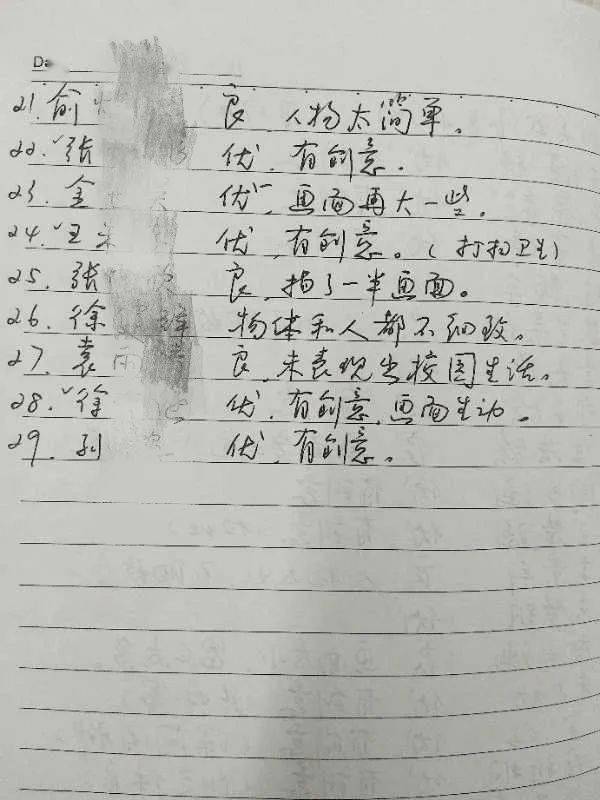 21. 俞 良 人物太简单。
22.ˇ张 优, 有创意.
23. 金 优⁻, 画面再大一些。
24.ˇ王 优, 有创意。(打扫卫生)
25. 张 良, 描了一半画面。
26. 徐 物体和人都不细致。
27. 袁 良, 未表现出校园生活。
28.ˇ徐 优, 有创意, 画面生动。
29. 孙 优, 有创意。